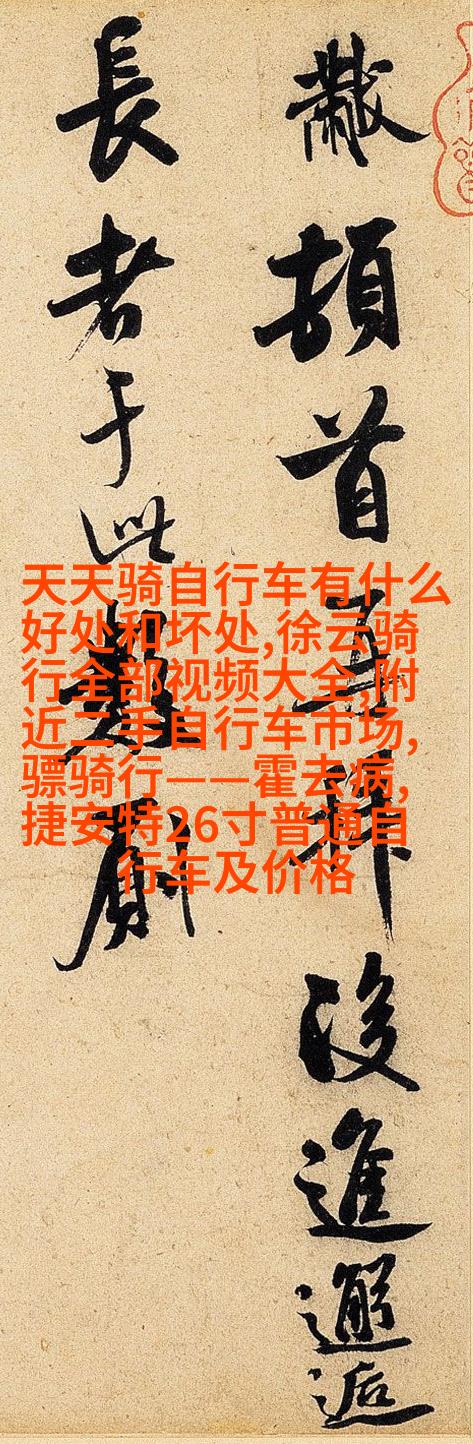 黻頓首再拜後進邂逅
長者于此數厠
天天骑自行车有什么
好处和坏处,徐云骑
行全部视频大全,附
近二手自行车市场,
骠骑行——霍去病,
捷安特26寸普通自
行车及价格